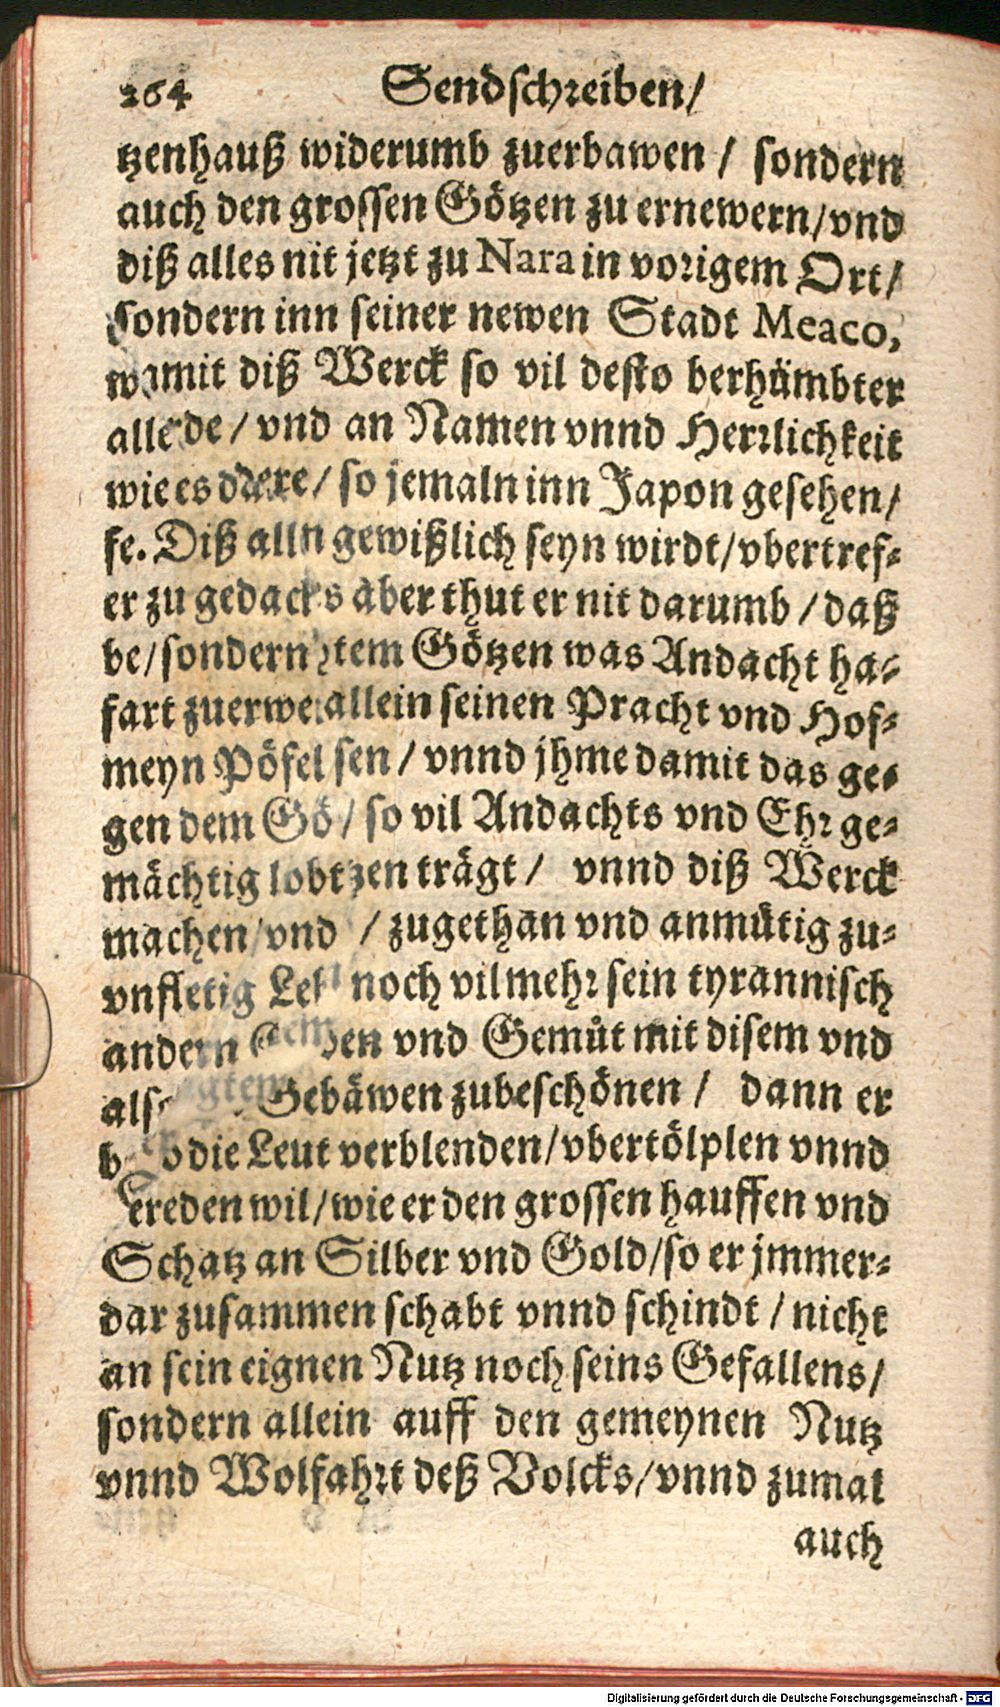 264 Sendschreiben/
tzenhauß widerumb zuerbawen / sondern
auch den grossen Götzen zu ernewern/vnd
diß alles nit jetzt zu Nara in vorigem Ort/
sondern inn seiner newen Stadt Meaco,
damit diß Werck so vil desto berhümbter
alle de / vnd an Namen vnnd Herrlichkeit
wie es dere/ so jemaln inn Japon gesehen/
fe. Diß alln gewißlich seyn wirdt/vbertref-
er zu gedacks aber thut er nit darumb / daß
be/sondern tem Götzen was Andacht ha-
fart zuerwe allein seinen Pracht vnd Hof-
meyn Pöfel sen / vnnd jhme damit das ge-
gen dem Gö / so vil Andachts vnd Ehr ge-
mächtig lobtzen trägt / vnnd diß Werck
machen/vnd / zugethan vnd anmütig zu-
vnfletig Leb noch vil mehr sein tyrannisch
andern en vnd Gemůt mit disem vnd
als Gebäwen zubeschönen / dann er
die Leut verblenden/vbertölplen vnnd
ereden wil/wie er den grossen hauffen vnd
Schatz an Silber vnd Gold/so er jmmer-
dar zusammen schabt vnnd schindt / nicht
an sein eignen Nutz noch seins Gefallens/
sondern allein auff den gemeynen Nutz
vnnd Wolfahrt deß Volcks/vnnd zumal
auch
Digitalisierung gefördert durch die Deutsche Forschungsgemeinschaft - DFG